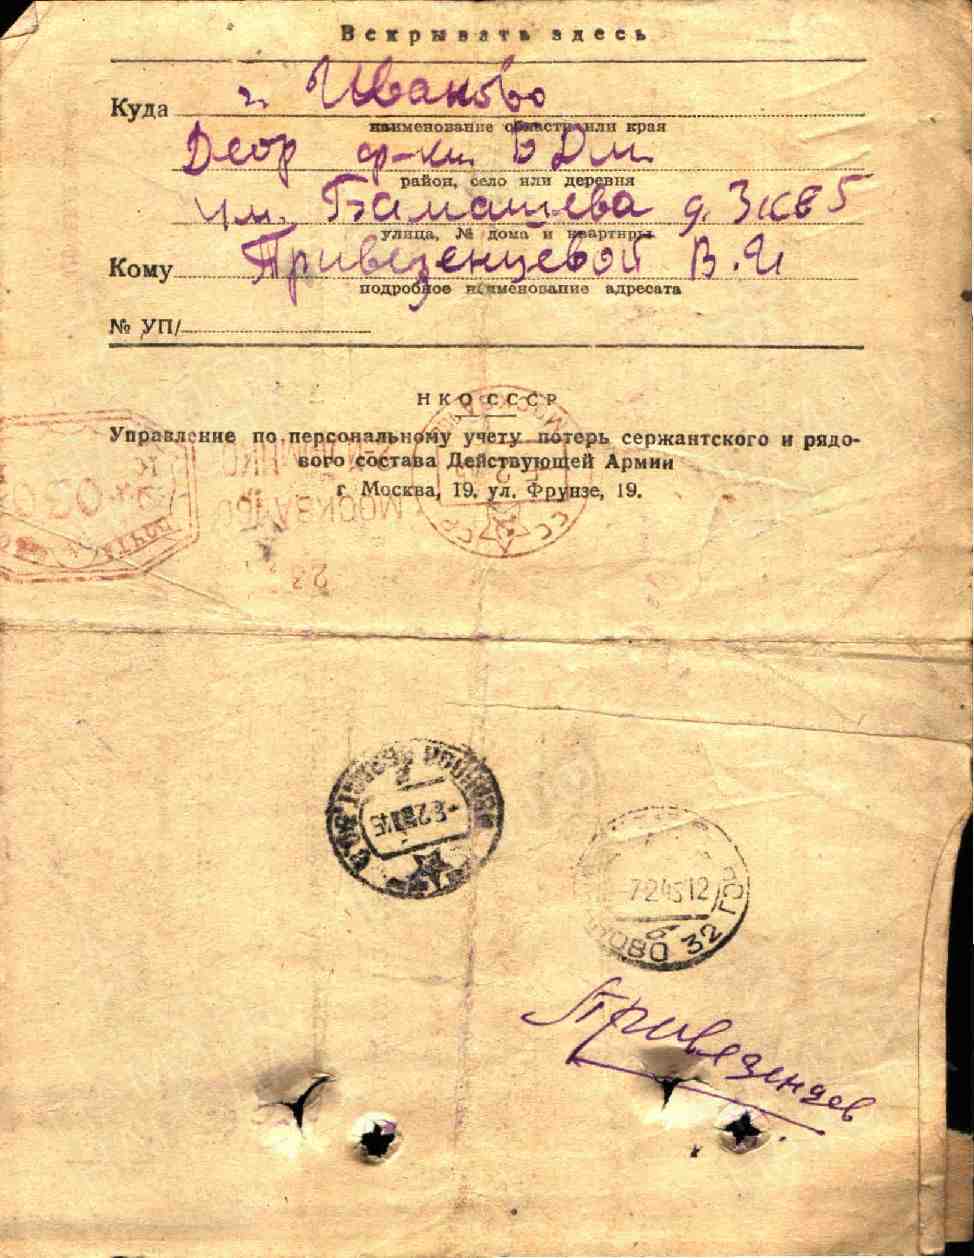 Вскрывать здесь
Куда г. Иваново
наименование области или края
Двор ф-ки БДМ
район, село или деревня
ул. Балашева д. 3 кв 5
улица, № дома и квартиры
Кому Привезенцевой В.И
подробное наименование адресата
№ УП/
НКО СССР
Управление по персональному учету потерь сержантского и рядо-
вого состава Действующей Армии
г. Москва, 19, ул. Фрунзе, 19.
МОСКВА
ПОЧТА
СССР
23
-8245
-7245 12
ОВО 32 ГОР
б
Привезенцев